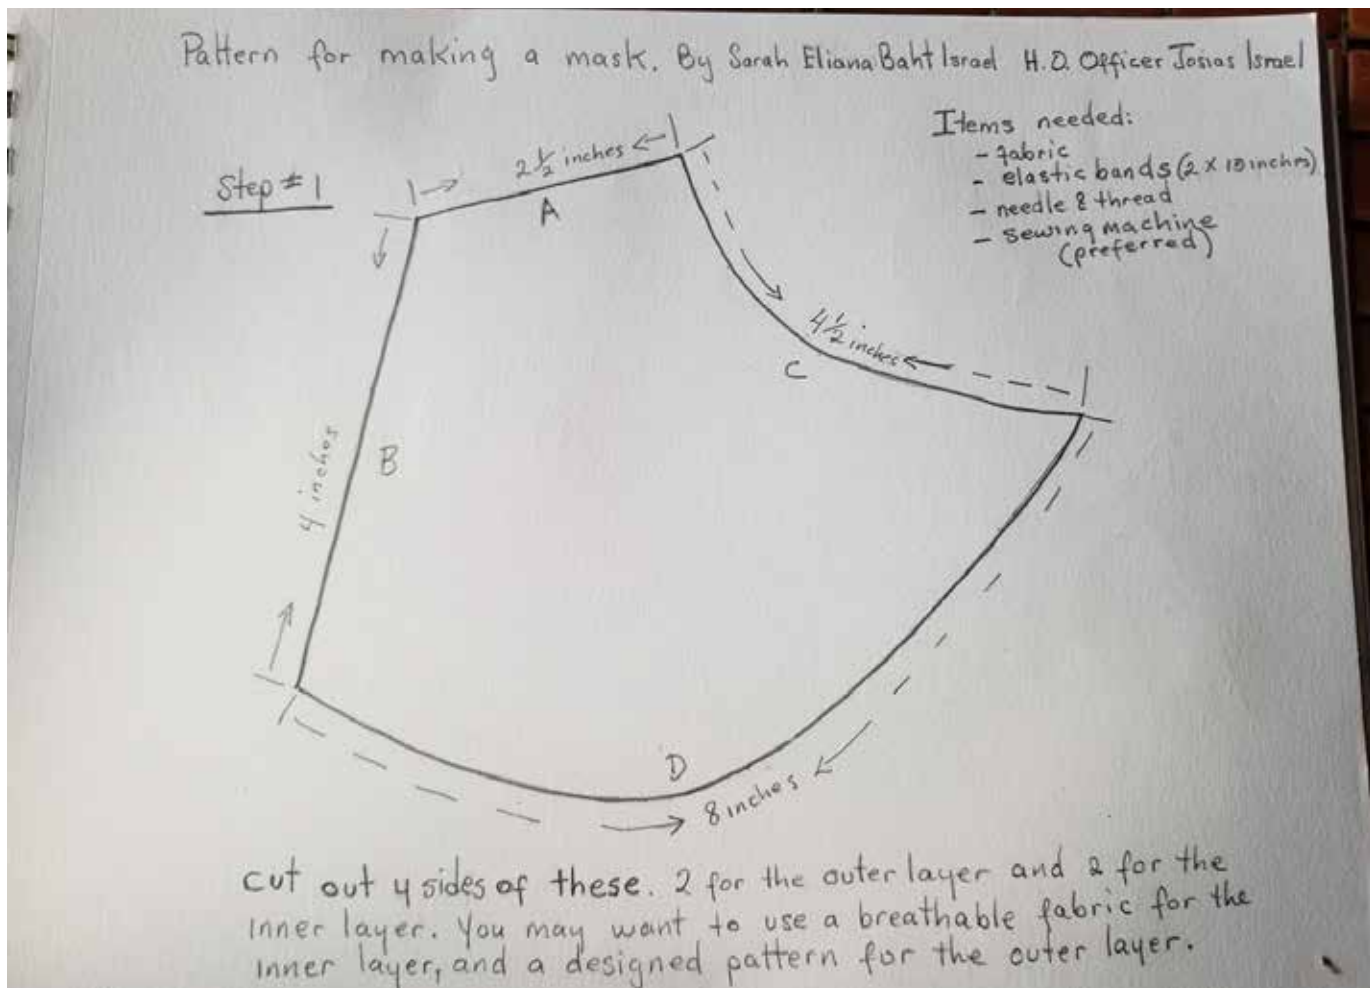 Pattern for making a mask. By Sarah Eliana Baht Israel H.O. Officer Josias Israel
Items needed:
- fabric
- elastic bands (2 x 10 inches)
- needle & thread
- sewing machine
(preferred)
Step #1
2 1/2 inches
A
4 inches
B
4 1/2 inches
C
D
8 inches
cut out 4 sides of these. 2 for the outer layer and 2 for the
inner layer. You may want to use a breathable fabric for the
inner layer, and a designed pattern for the outer layer.